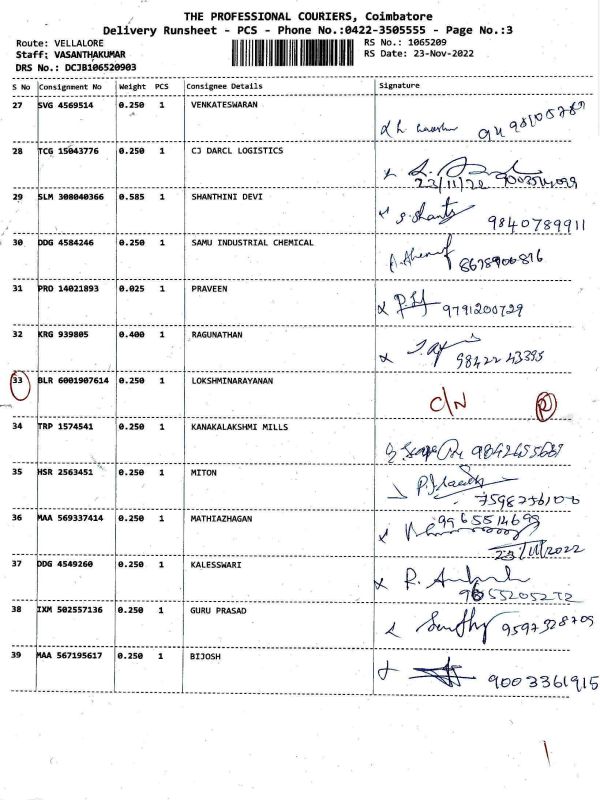 THE PROFESSIONAL COURIERS, Coimbatore
Delivery Runsheet - PCS - Phone No.:0422-3505555 - Page No.:3
Route: VELLALORE RS No.: 1065209
Staff: VASANTHAKUMAR RS Date: 23-Nov-2022
DRS No.: DCJB106520903
S No Consignment No Weight PCS Consignee Details Signature
27 SVG 4569514 0.250 1 VENKATESWARAN
28 TCG 15043776 0.250 1 CJ DARCL LOGISTICS
23/11/22
29 SLM 308040366 0.585 1 SHANTHINI DEVI
9840789911
30 DDG 4584246 0.250 1 SAMU INDUSTRIAL CHEMICAL
8678900816
31 PRO 14021893 0.025 1 PRAVEEN
9791200729
32 KRG 939805 0.400 1 RAGUNATHAN
98422 43395
33 BLR 6001907614 0.250 1 LOKSHMINARAYANAN
C/N R
34 TRP 1574541 0.250 1 KANAKALAKSHMI MILLS
35 HSR 2563451 0.250 1 MITON
36 MAA 569337414 0.250 1 MATHIAZHAGAN
9965514699
23/11/2022
37 DDG 4549260 0.250 1 KALESSWARI
9655205272
38 IXM 502557136 0.250 1 GURU PRASAD
9597528709
39 MAA 567195617 0.250 1 BIJOSH
9003361915